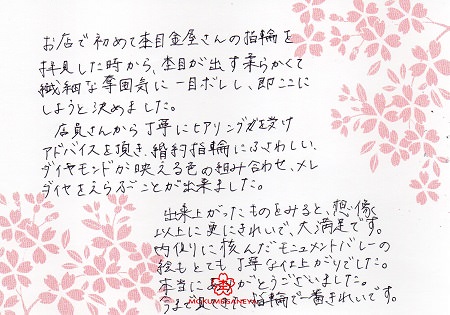 お店で初めて杢目金屋さんの指輪を
拝見した時から、杢目が出す柔らかくて
繊細な雰囲気に一目ボレし、即ここに
しようと決めました。
店員さんから丁寧にヒアリングを受け
アドバイスを頂き、婚約指輪にふさわしい、
ダイヤモンドが映える色の組み合わせ、メレ
ダイヤをえらぶことが出来ました。
出来上がったものをみると、想像
以上に更にきれいで、大満足です。
内側に 掘んだモニュメントバレーの
絵もとても丁寧な仕上がりでした。
本当にありがとうございました。
MOKUMEGANEYA
今まで見てきた指輪で一番きれいです。